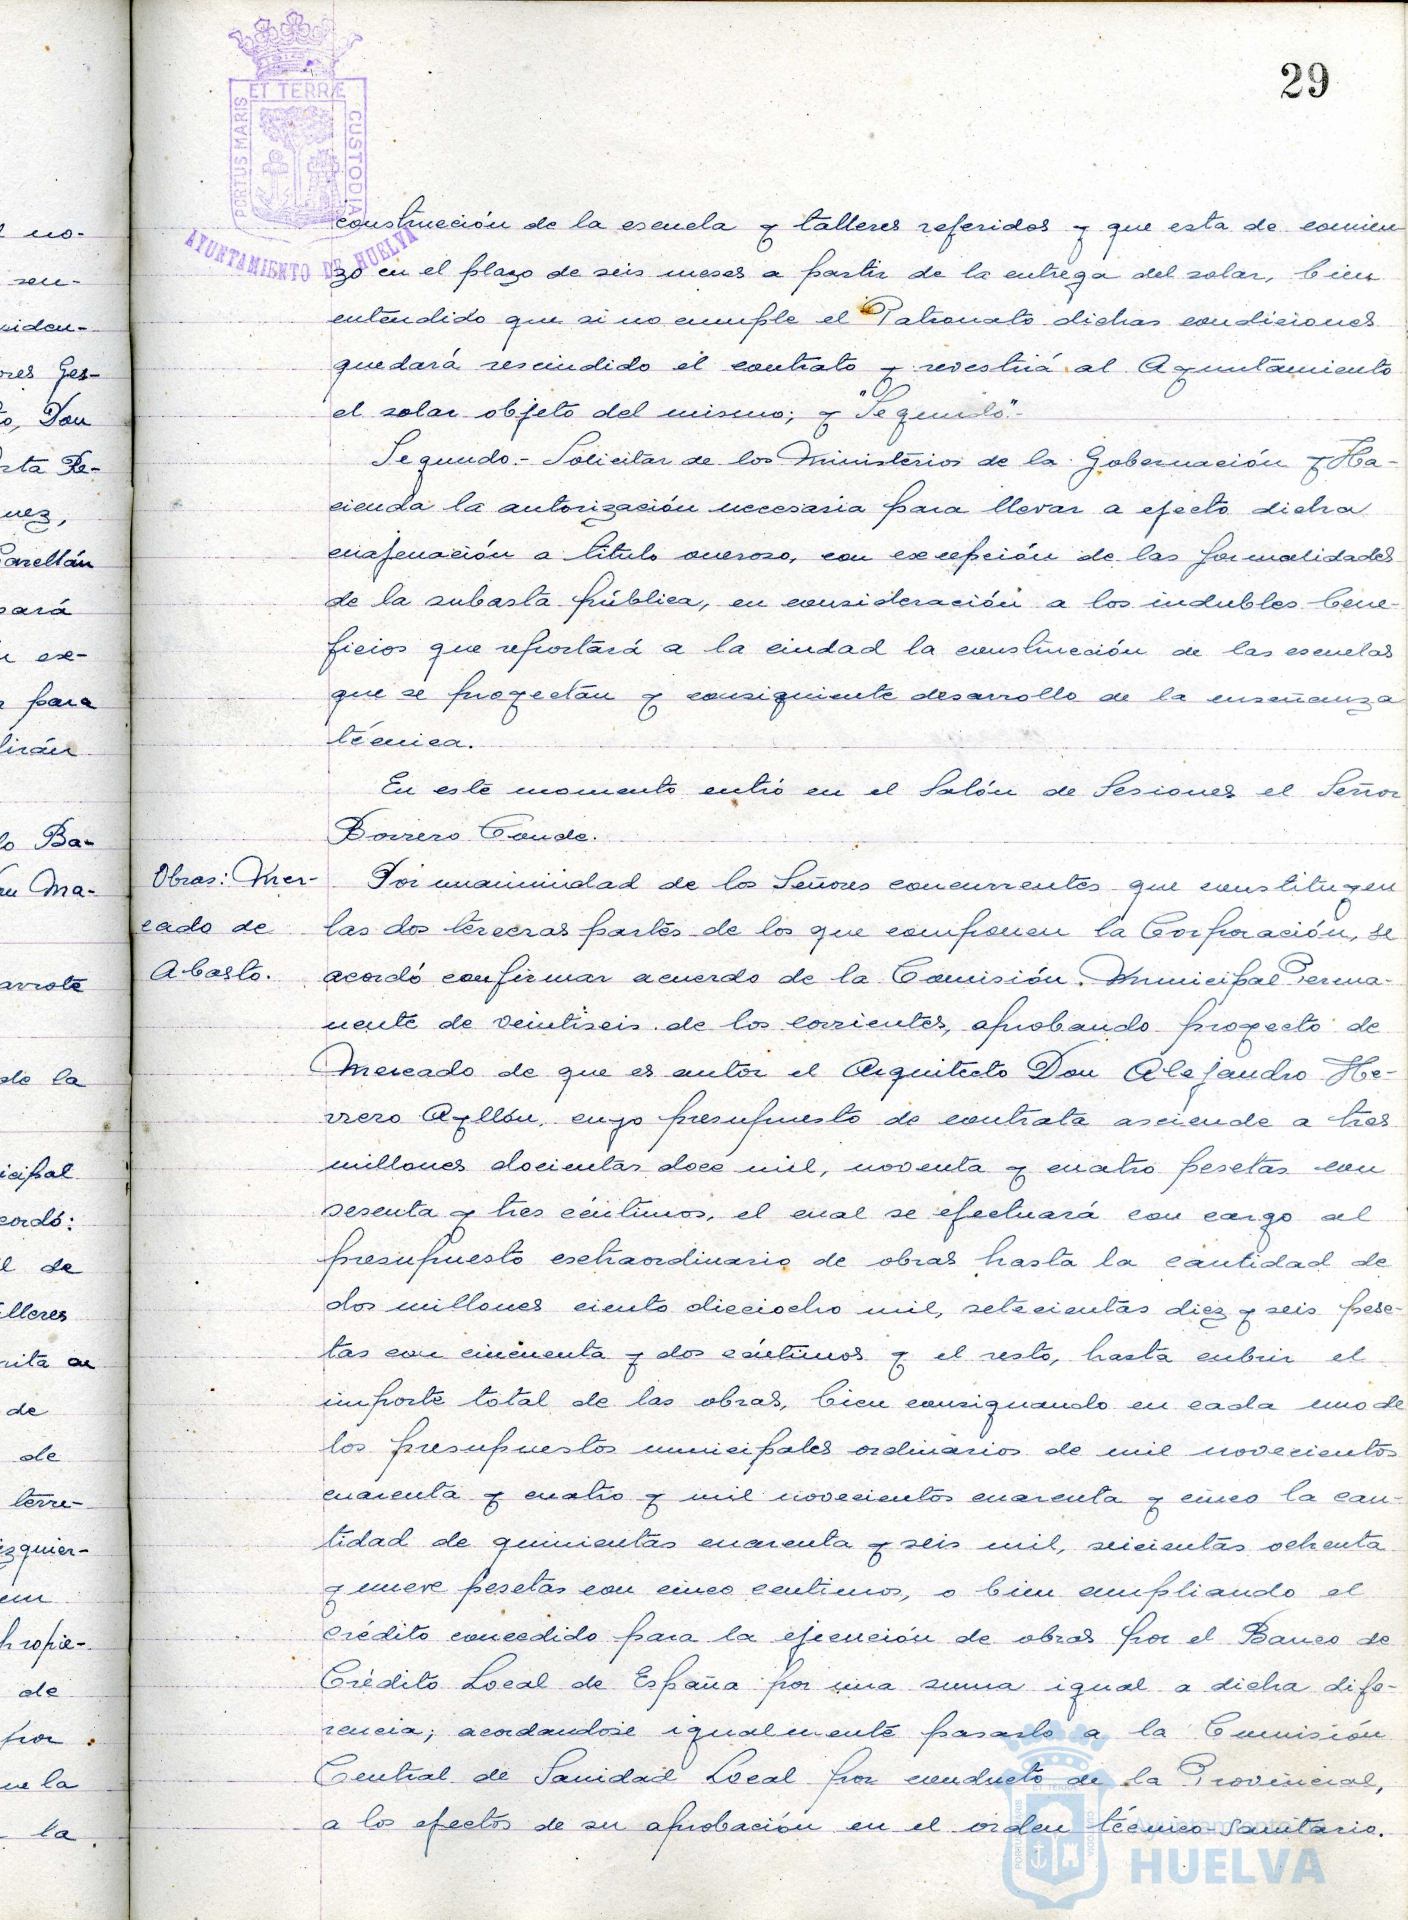 29
ET TERRÆ
PORTUS MARIS
CUSTODIA
AYUNTAMIENTO DE HUELVA
construcción de la escuela y talleres referidos y que esta de comien
zo en el plazo de seis meses a partir de la entrega del solar, bien
entendido que si no cumple el Patronato dichas condiciones
quedará rescindido el contrato y revestirá al Ayuntamiento
el solar objeto del mismo; y "Segundo".-
Segundo.- Solicitar de los Ministerios de la Gobernación y Ha-
cienda la autorización necesaria para llevar a efecto dicha
enajenación a título oneroso, con excepción de las formalidades
de la subasta pública, en consideración a los indubles bene-
ficios que reportará a la ciudad la construcción de las escuelas
que se proyectan y consiguiente desarrollo de la enseñanza
técnica.
En este momento entró en el Salón de Sesiones el Señor
Borrero Conde.
Obras: Mer-
cado de
Abasto.
Por unanimidad de los Señores concurrentes que constituyen
las dos terceras partes de los que componen la Corporación, se
acordó confirmar acuerdo de la Comisión Municipal Perma-
nente de veintiseis de los corrientes, aprobando proyecto de
Mercado de que es autor el Arquitecto Don Alejandro He-
rrero Ayllón, cuyo presupuesto de contrata asciende a tres
millones docientas doce mil, noventa y cuatro pesetas con
sesenta y tres céntimos, el cual se efectuará con cargo al
presupuesto esctraordinario de obras hasta la cantidad de
dos millones ciento dieciocho mil, setecientas diez y seis pese-
tas con cincuenta y dos céntimos y el resto, hasta cubrir el
importe total de las obras, bien consignando en cada uno de
los presupuestos municipales ordinarios de mil novecientos
cuarenta y cuatro y mil novecientos cuarenta y cinco la can-
tidad de quinientas cuarenta y seis mil, seicientas ochenta
y nueve pesetas con cinco centimos, o bien ampliando el
crédito concedido para la ejecución de obras por el Banco de
Crédito Local de España por una suma igual a dicha dife-
rencia; acordandose igualmente pasarlo a la Comisión
Central de Sanidad Local por conducto de la Provincial,
a los efectos de su aprobación en el orden técnico-sanitario.
HUELVA